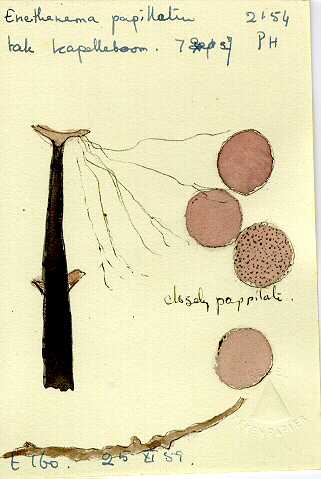 Enerthenema papillatum 2154
tak kapelleboom. 7 PH
closely pappilate.
E 160. 25 XI 59.